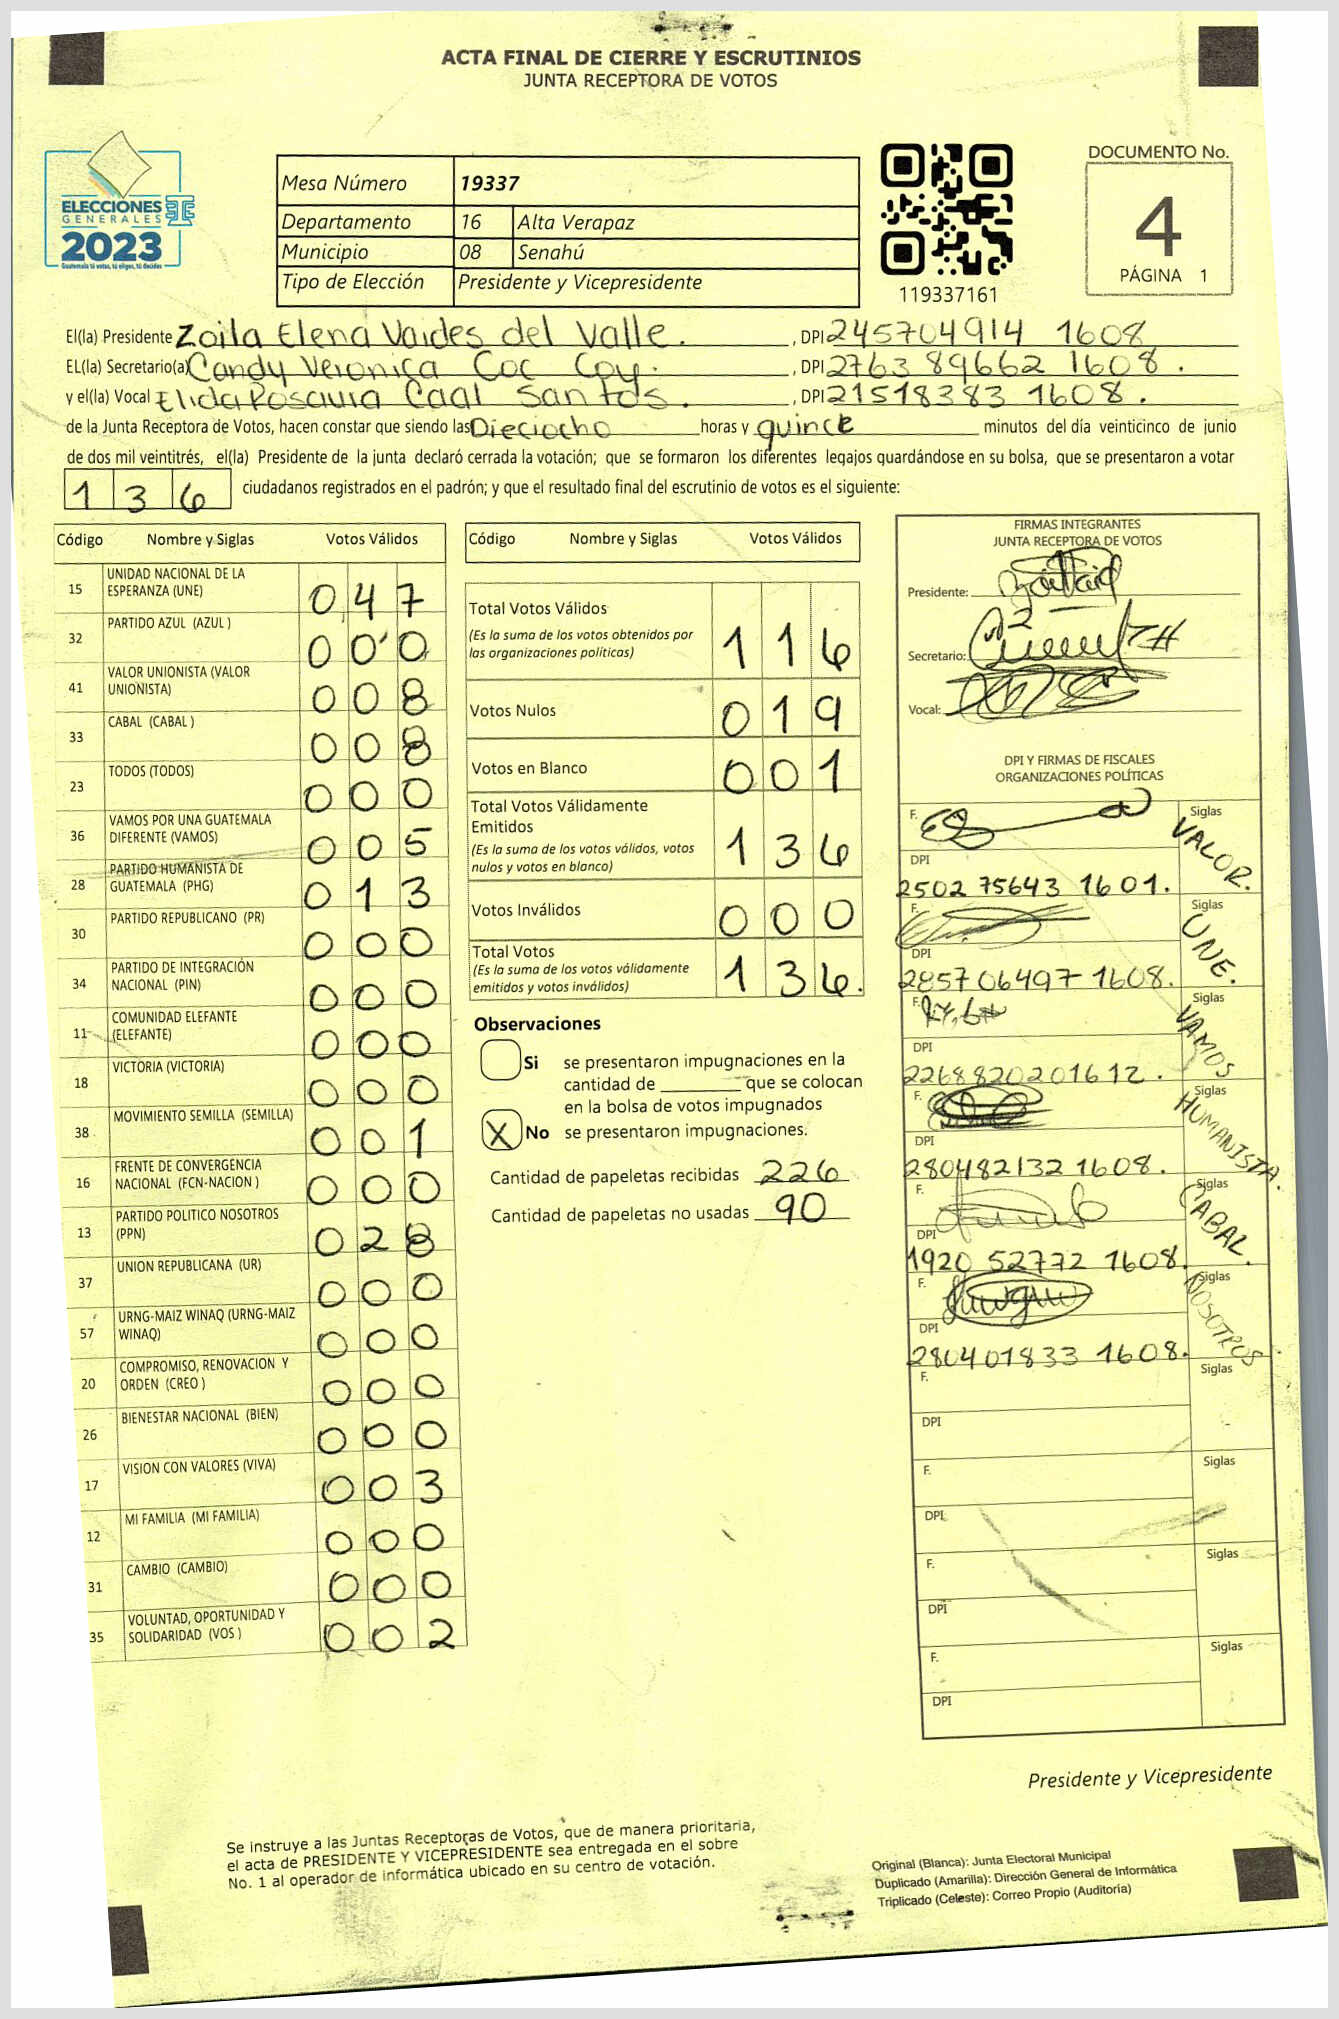 ACTA FINAL DE CIERRE Y ESCRUTINIOS
JUNTA RECEPTORA DE VOTOS
ELECCIONES
GENERALES
2023
Guatemala tú votas, tú eliges, tú decides
Mesa Número 19337
Departamento 16 Alta Verapaz
Municipio 08 Senahú
Tipo de Elección Presidente y Vicepresidente
119337161
DOCUMENTO No.
4
PÁGINA 1
El(la) Presidente Zoila Elena Valdes del Valle. , DPI 245704914 1608
EL(la) Secretario(a) Candy Veronica Coc Coy. , DPI 2763 89662 1608.
y el(la) Vocal Elida Rosaura Caal Santos. , DPI 21518383 1608.
de la Junta Receptora de Votos, hacen constar que siendo las Dieciocho horas y quince minutos del día veinticinco de junio
de dos mil veintitrés, el(la) Presidente de la junta declaró cerrada la votación; que se formaron los diferentes legajos guardándose en su bolsa, que se presentaron a votar
136 ciudadanos registrados en el padrón; y que el resultado final del escrutinio de votos es el siguiente:
Código Nombre y Siglas Votos Válidos
15 UNIDAD NACIONAL DE LA ESPERANZA (UNE) 047
32 PARTIDO AZUL (AZUL ) 000
41 VALOR UNIONISTA (VALOR UNIONISTA) 008
33 CABAL (CABAL ) 008
23 TODOS (TODOS) 000
36 VAMOS POR UNA GUATEMALA DIFERENTE (VAMOS) 005
28 PARTIDO HUMANISTA DE GUATEMALA (PHG) 013
30 PARTIDO REPUBLICANO (PR) 000
34 PARTIDO DE INTEGRACIÓN NACIONAL (PIN) 000
11 COMUNIDAD ELEFANTE (ELEFANTE) 000
18 VICTORIA (VICTORIA) 000
38 MOVIMIENTO SEMILLA (SEMILLA) 001
16 FRENTE DE CONVERGENCIA NACIONAL (FCN-NACION ) 000
13 PARTIDO POLITICO NOSOTROS (PPN) 028
37 UNION REPUBLICANA (UR) 000
57 URNG-MAIZ WINAQ (URNG-MAIZ WINAQ) 000
20 COMPROMISO, RENOVACION Y ORDEN (CREO ) 000
26 BIENESTAR NACIONAL (BIEN) 000
17 VISION CON VALORES (VIVA) 003
12 MI FAMILIA (MI FAMILIA) 000
31 CAMBIO (CAMBIO) 000
35 VOLUNTAD, OPORTUNIDAD Y SOLIDARIDAD (VOS ) 002
Código Nombre y Siglas Votos Válidos
Total Votos Válidos 116
(Es la suma de los votos obtenidos por
las organizaciones políticas)
Votos Nulos 019
Votos en Blanco 001
Total Votos Válidamente
Emitidos 136
(Es la suma de los votos válidos, votos
nulos y votos en blanco)
Votos Inválidos 000
Total Votos 136.
(Es la suma de los votos válidamente
emitidos y votos inválidos)
Observaciones
Si se presentaron impugnaciones en la
cantidad de ________ que se colocan
en la bolsa de votos impugnados
X No se presentaron impugnaciones.
Cantidad de papeletas recibidas 226
Cantidad de papeletas no usadas 90
FIRMAS INTEGRANTES
JUNTA RECEPTORA DE VOTOS
Presidente:
Secretario:
Vocal:
DPI Y FIRMAS DE FISCALES
ORGANIZACIONES POLÍTICAS
F. Siglas VALOR.
DPI 2502 75643 1601.
F. Siglas UNE.
DPI 285706497 1608.
F. Siglas VAMOS
DPI 2268820201612.
F. Siglas HUMANISTA.
DPI 280482132 1608.
F. Siglas CABAL.
DPI 1920 52772 1608.
F. Siglas NOSOTROS
DPI 280401833 1608.
F. Siglas
DPI
F. Siglas
DPI
F. Siglas
DPI
F. Siglas
DPI
Presidente y Vicepresidente
Se instruye a las Juntas Receptoras de Votos, que de manera prioritaria,
el acta de PRESIDENTE Y VICEPRESIDENTE sea entregada en el sobre
No. 1 al operador de informática ubicado en su centro de votación.
Original (Blanca): Junta Electoral Municipal
Duplicado (Amarilla): Dirección General de Informática
Triplicado (Celeste): Correo Propio (Auditoría)